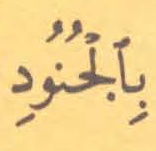 بِٱلْجُنُودِ